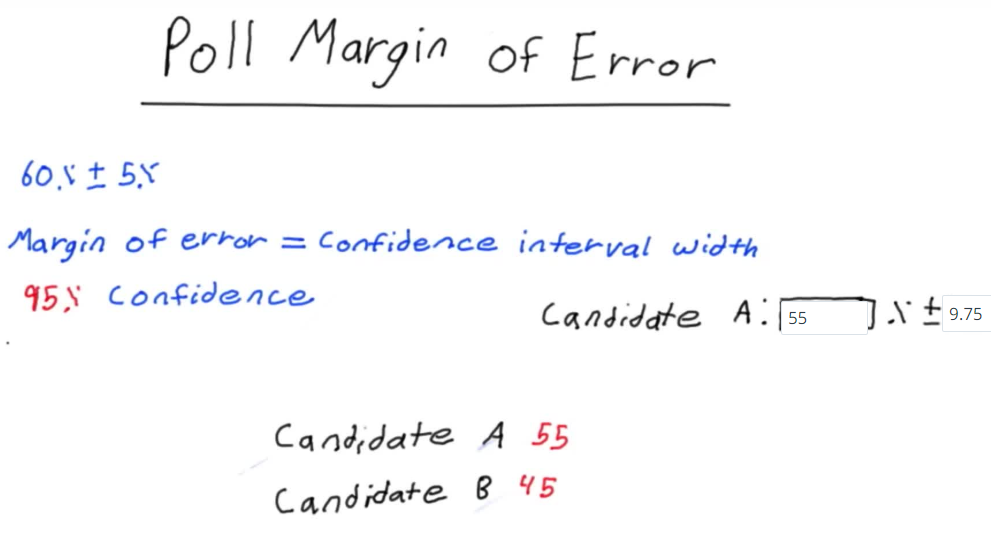 Poll Margin of Error
60% ± 5%
Margin of error = Confidence interval width
95% Confidence
Candidate A: 55 % ± 9.75
Candidate A 55
Candidate B 45